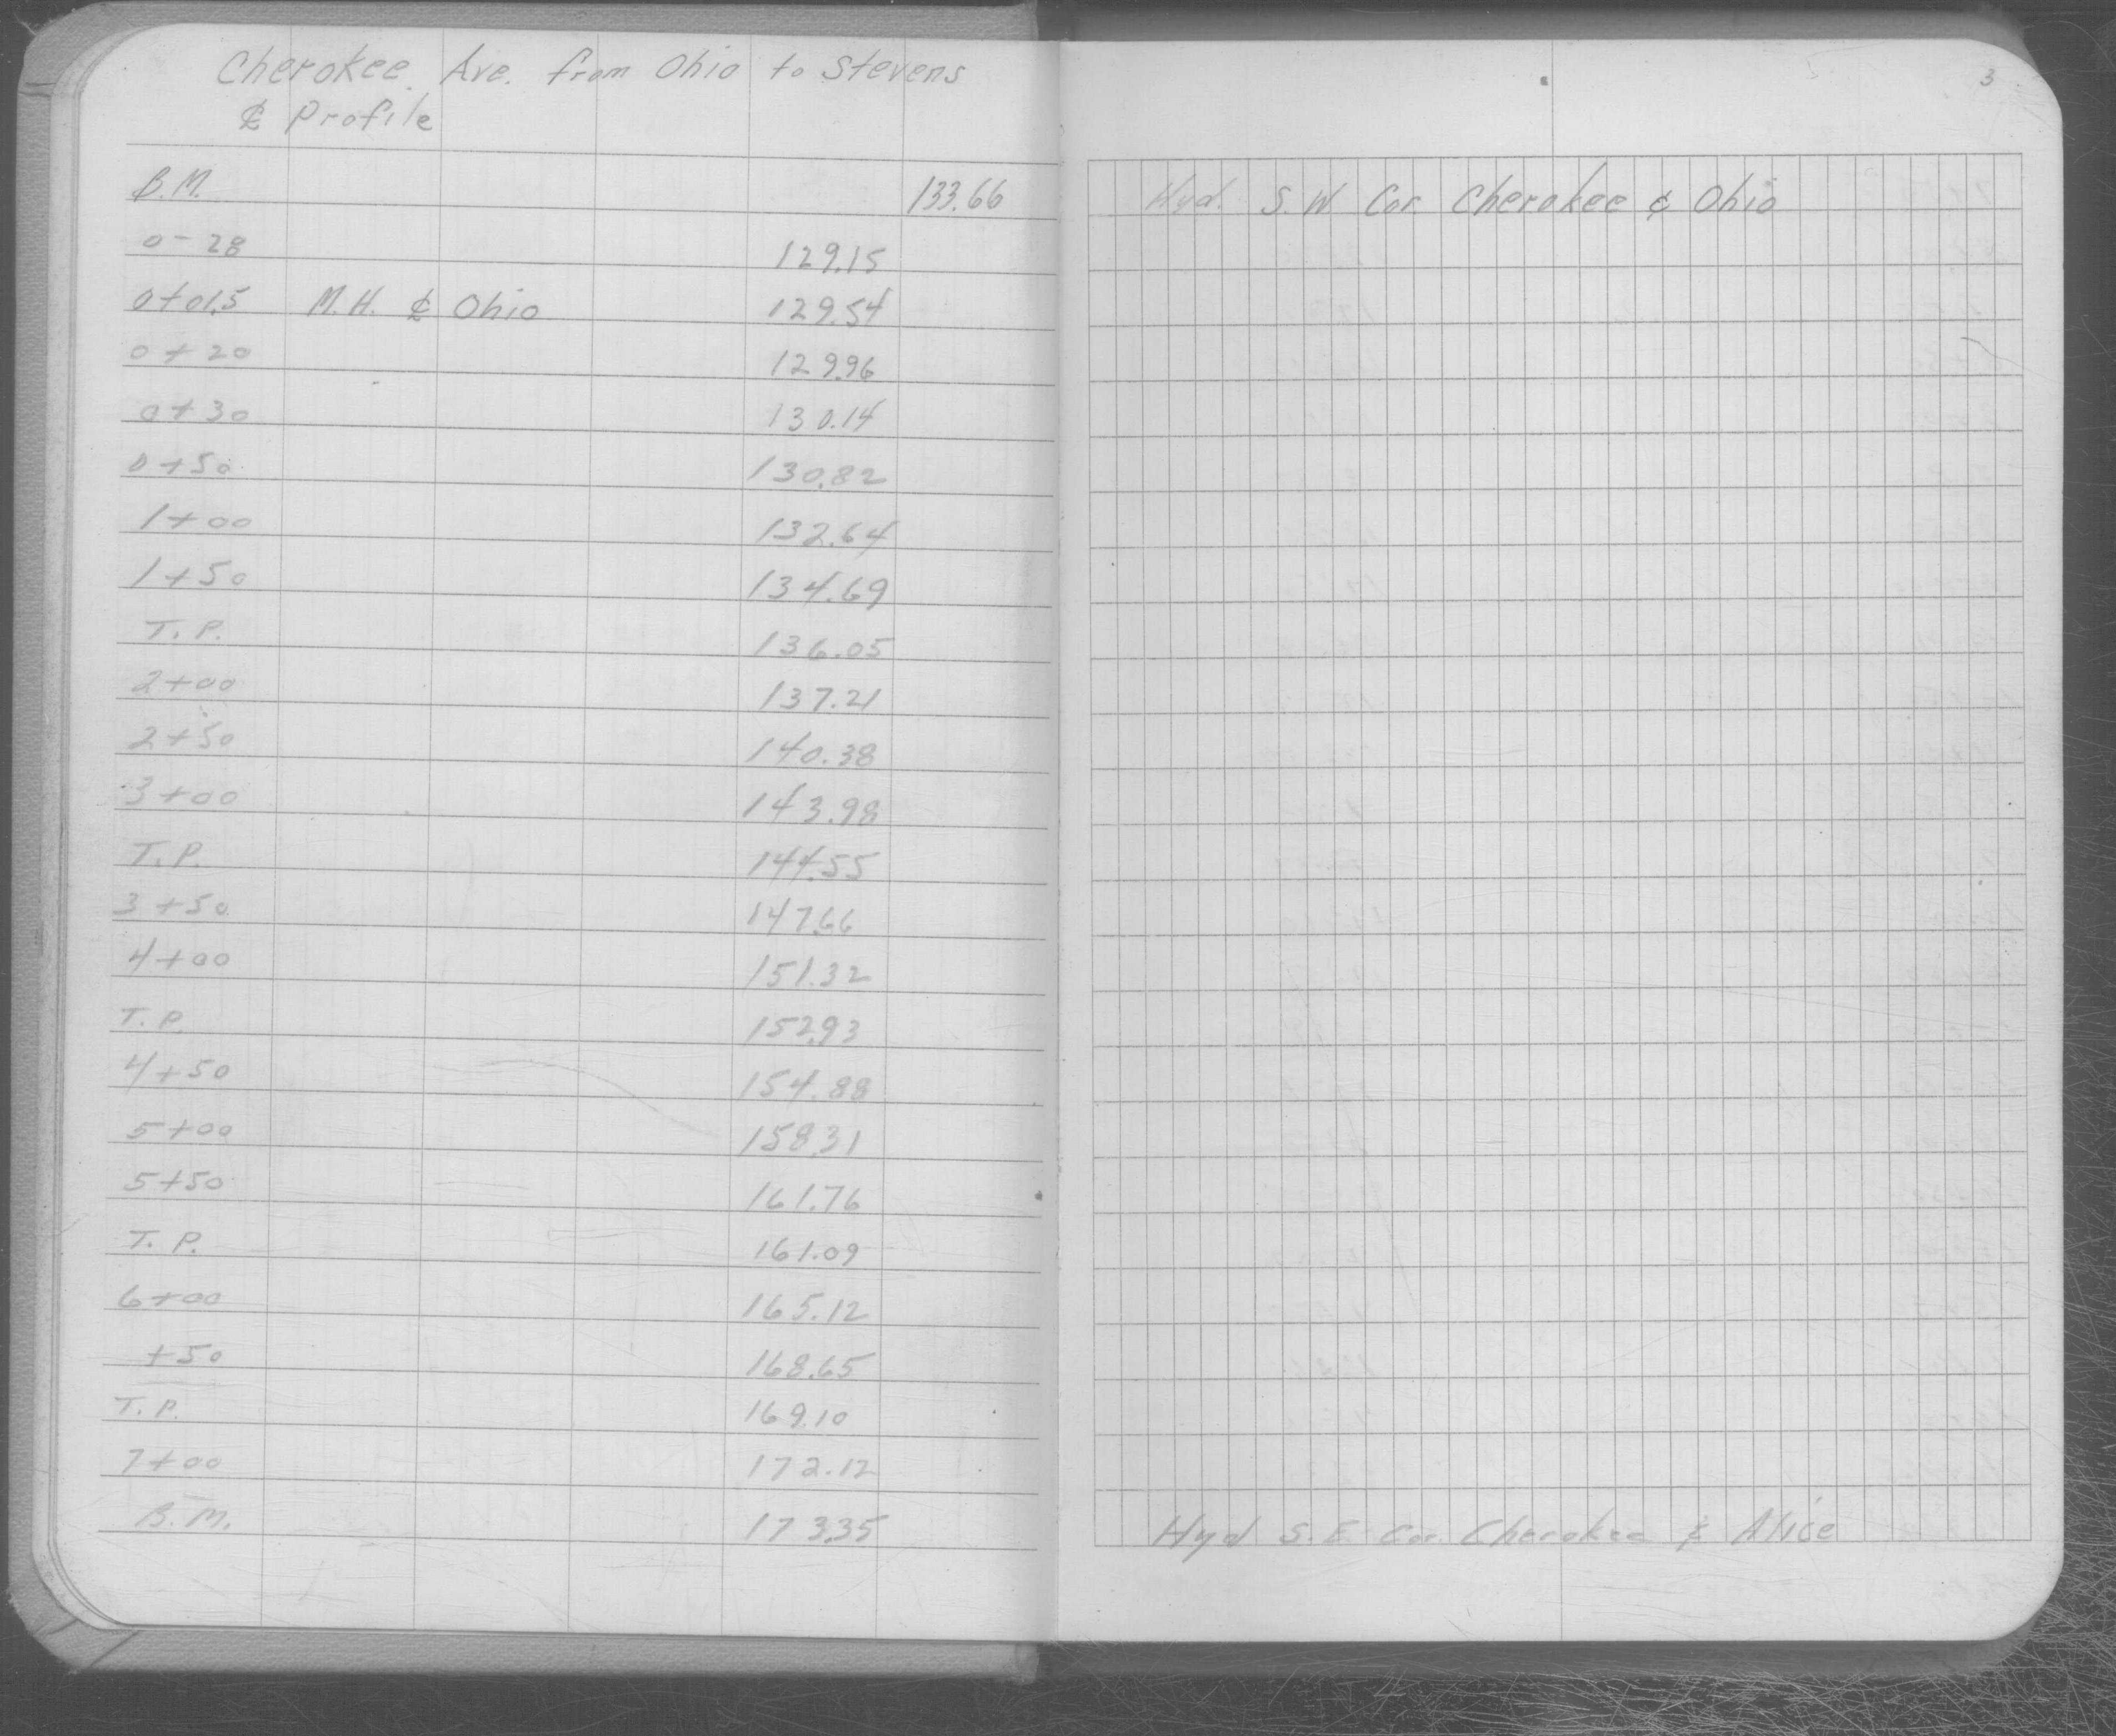 Cherokee Ave. from Ohio to Stevens
℄ Profile
3
B.M. 133.66 Hyd. S.W Cor. Cherokee & Ohio
0-28 129.15
0+01.5 M.H. ℄ Ohio 129.54
0+20 129.96
0+30 130.14
0+50 130.82
1+00 132.64
1+50 134.69
T.P. 136.05
2+00 137.21
2+50 140.38
3+00 143.98
T.P. 144.55
3+50 147.66
4+00 151.32
T.P. 152.93
4+50 154.88
5+00 158.31
5+50 161.76
T.P. 161.09
6+00 165.12
+50 168.65
T.P. 169.10
7+00 172.12
B.M. 173.35 Hyd S.E. Cor. Cherokee & Alice